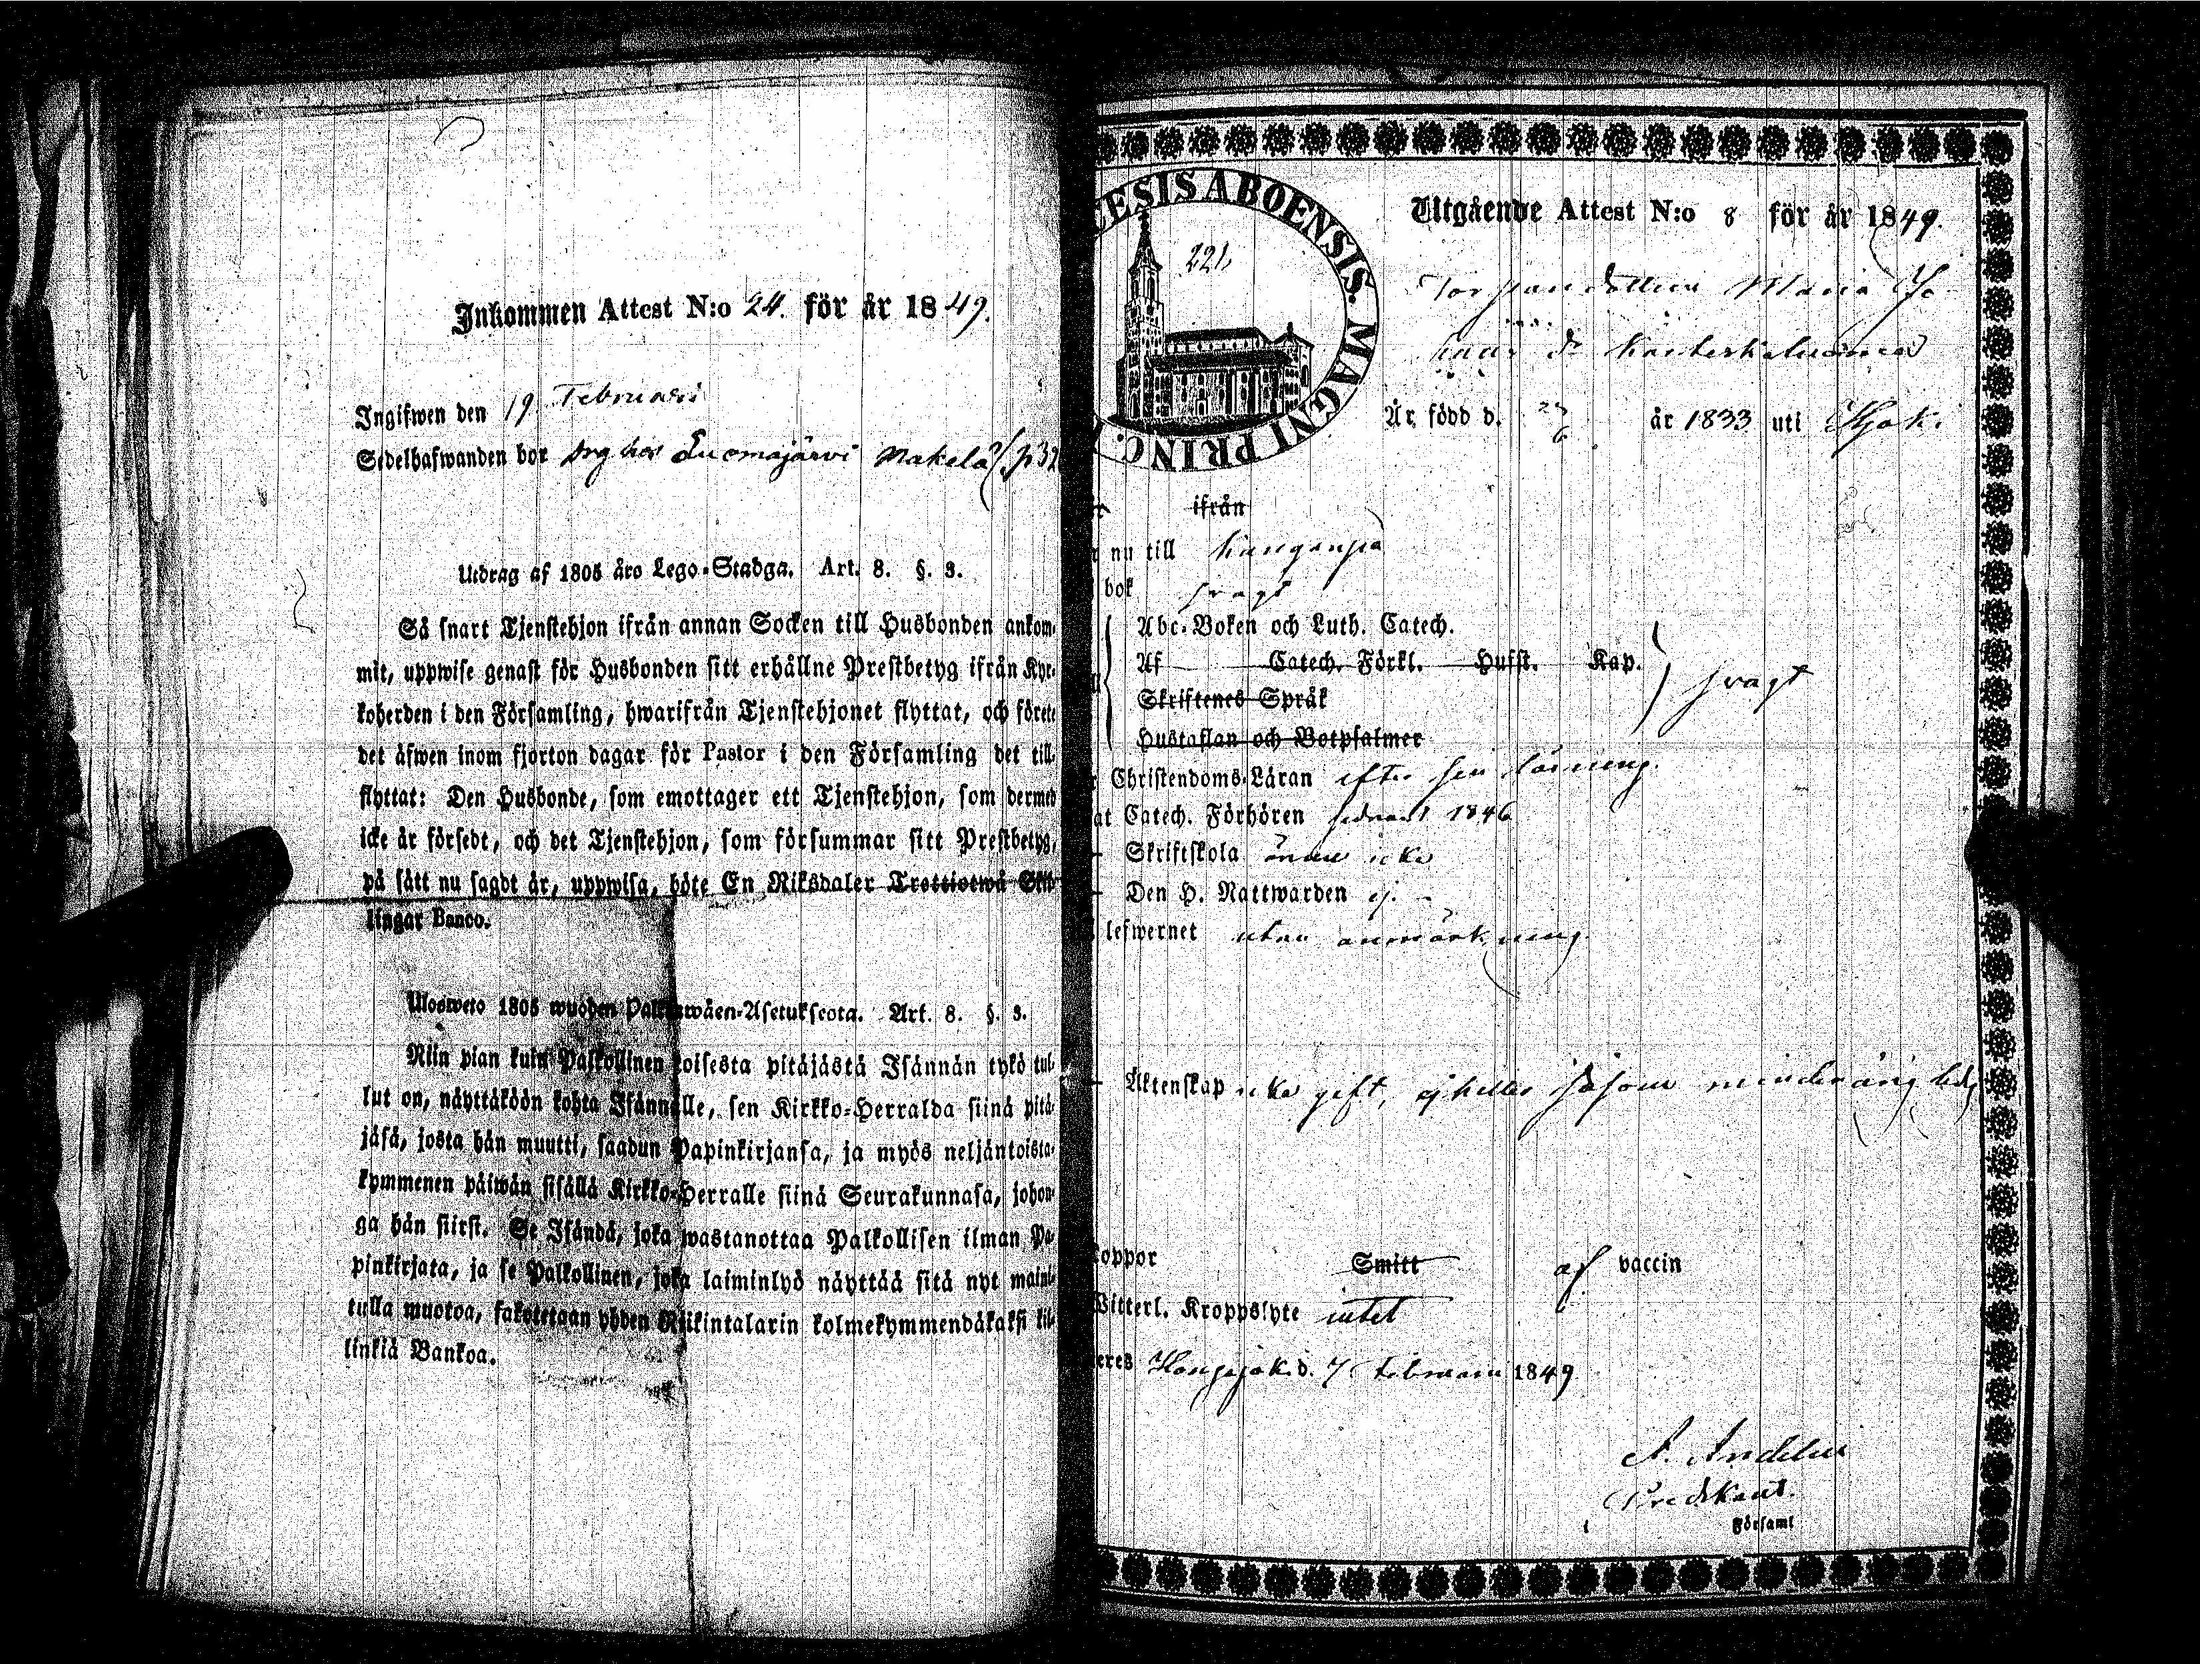 Inkommen Attest N:o 24. för år 1849.
Ingifwen den 19 Februari
Sedelhafwanden bor hos Suomajärvi Makelä p 32
Utdrag af 1805 års Lego-Stadga. Art. 8. §. 3.
Så snart Tjenstehjon ifrån annan Socken till Husbonden ankom-
mit, uppwise genast för Husbonden sitt erhållne Prestbetyg ifrån Kyr-
koherden i den Församling, hwarifrån Tjenstehjonet flyttat, och förete
det äfwen inom fjorton dagar för Pastor i den Församling det till-
flyttat: Den Husbonde, som emottager ett Tjenstehjon, som dermed
icke är försedt, och det Tjenstehjon, som försummar sitt Prestbetyg,
på sätt nu sagdt är, uppwisa, böte En Riksdaler Trettiotwå Skil-
lingar Banco.
Ulosweto 1805 wuoden Palkkawäen-Asetuksesta. Art. 8. §. 3.
Niin pian kuin Palkollinen toisesta pitäjästä Isännän tykö tul-
lut on, näyttäköön kohta Isännälle, sen Kirkko-Herralda siinä pitä-
jäsä, josta hän muutti, saadun Papinkirjansa, ja myös neljäntoista-
kymmenen päiwän sisällä Kirkko-Herralle siinä Seurakunnasa, johon-
ga hän siirst. Se Isändä, joka wastanottaa Palkollisen ilman Pa-
pinkirjata, ja se Palkollinen, joka laiminlyö näyttää sitä nyt maini-
tulla muotoa, sakotetaan yhden Riikintalarin kolmekymmendäkaksi kil-
linkiä Bankoa.
CESIS ABOENSIS. MAGNI PRINC.
221.
Utgående Attest N:o 8 för år 1849.
Torpare dottren Maria
Är född d. 27/6 år 1833 uti Hjoki.
ifrån
nu till Kanganpä
bok svagt
Abc-Boken och Luth. Catech.
Af Catech. Förkl. Hufst. Kap.
Skriftenes Språk
Hustaflan och Botpsalmer
svagt
Christendoms-Läran efter sin lärneng.
at Catech. Förhören sednast 1846
Skriftskola ännu icke
Den H. Nattwarden ej.
lefwernet utan anmärkning.
Äktenskap icke gift, ej heller såsom minderårig ledig
koppor Smitt af vaccin
Witterl. Kroppslyte intet
eres Hongojoki d. 7 Februari 1849
Predikant.
Församl